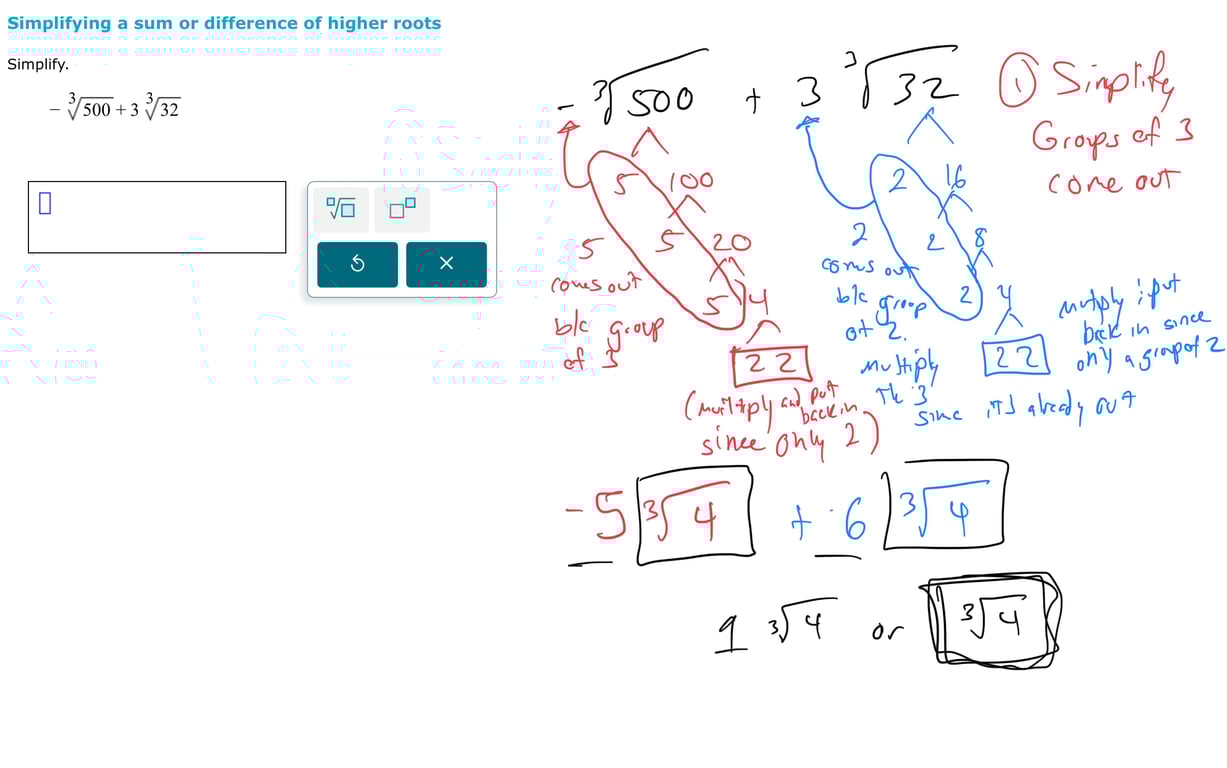 Simplifying a sum or difference of higher roots
Simplify.
− ∛500 + 3 ∛32
- ∛500 + 3 ∛32
① Simplify
Groups of 3
come out
5 100
5 20
5 4
2 2
5
comes out
b/c group
of 3
(multiply and put
back in
since only 2)
2 16
2 8
2 4
2 2
2
comes out
b/c group
of 2.
multiply
the 3
since its already out
multiply & put
back in since
only a group of 2
-5 ∛4 + 6 ∛4
1 ∛4 or ∛4